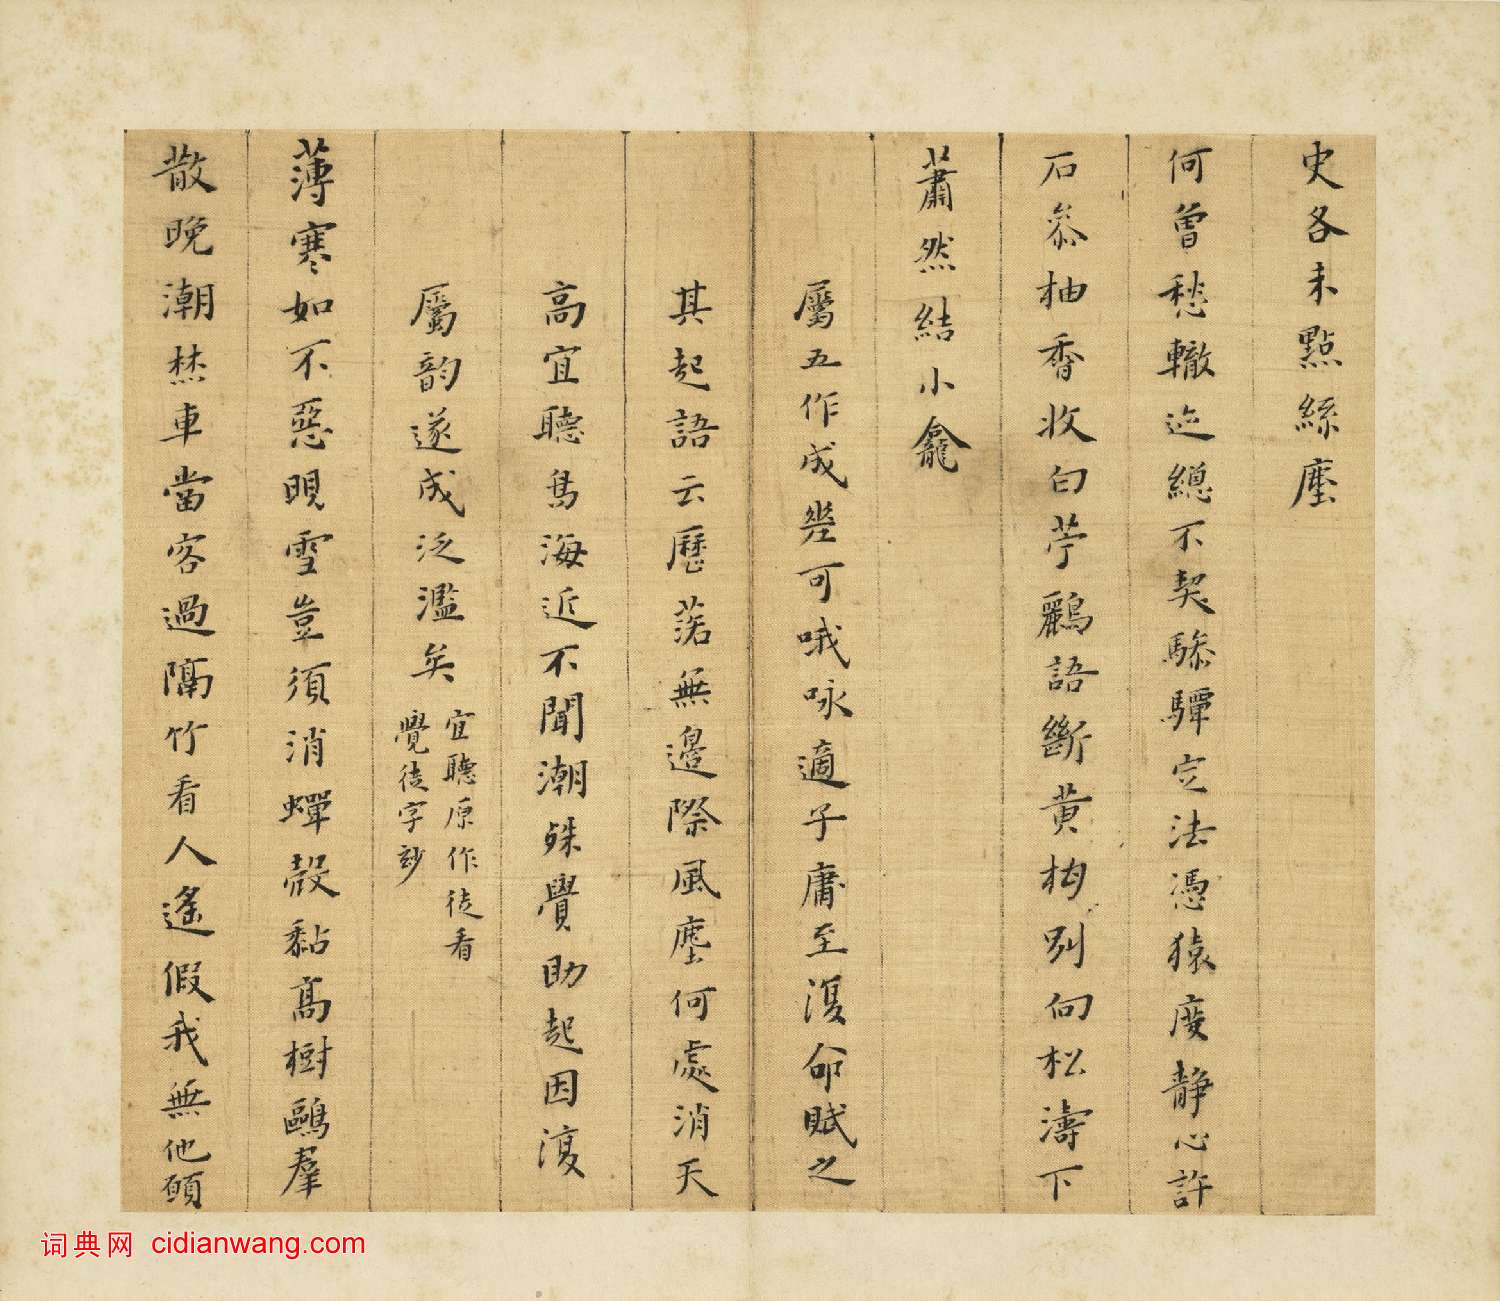 史各未點絲塵
何曾愁轍迹總不契驂驔定法憑猿度静心許
石叅柚香收白苧鸝語斷黄梅別向松濤下
蕭然結小龕
屬五作成幾可哦咏適子庸至復命賦之
其起語云歷落無邊際風塵何處消天
高宜聽鳥海近不聞潮殊覺助起因復
屬韵遂成泛濫矣宜聽原作徒看
覺徒字妙
薄寒如不惡晛雪豈須消蟬殻黏高樹鷗羣
散晚潮焚車當客過隔竹看人遙假我無他願
词典网 cidianwang.com